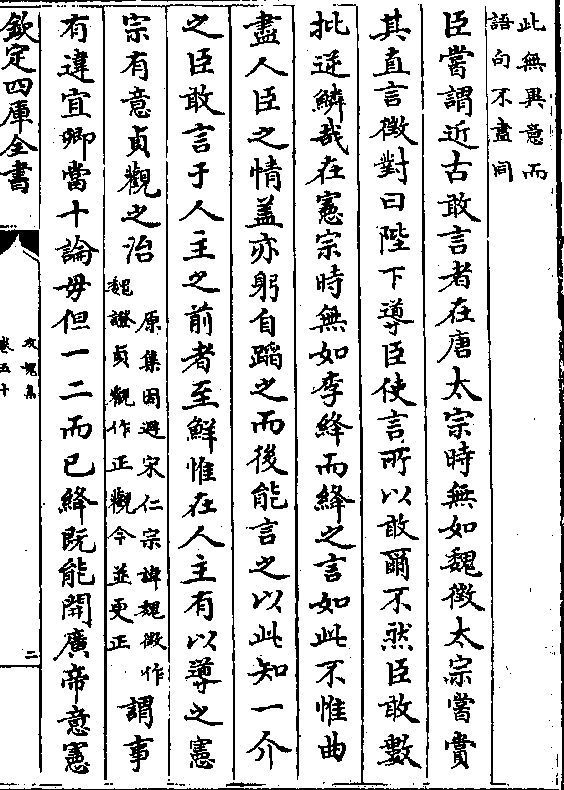 此無異意而
語句不盡同
臣嘗謂近古敢言者在唐太宗時無如魏徵太宗嘗賞
其直言徵對曰陛下導臣使言所以敢爾不然臣敢數
批逆鱗哉在憲宗時無如李絳而絳之言如此不惟曲
盡人臣之情盖亦躬自蹈之而後能言之以此知一介
之臣敢言于人主之前者至鮮惟在人主有以導之憲
宗有意貞觀之治
原集因避宋仁宗諱魏徵作
魏證貞觀作正觀今並更正
謂事
有違宜卿當十論毋但一二而已絳既能開廣帝意憲
欽定四庫全書
攻媿集
卷五十
二